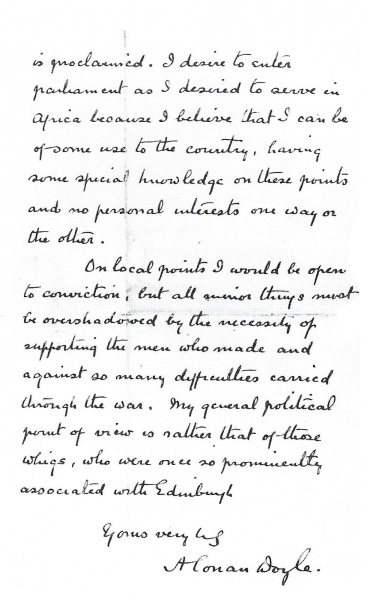 is proclaimed. I desire to enter
parliament as I desired to serve in
Africa because I believe that I can be
of some use to the country, having
some special knowledge on these points
and no personal interests one way or
the other.
On local points I would be open
to conviction, but all minor things must
be overshadowed by the necessity of
supporting the men who made and
against so many difficulties carried
through the war. My general political
point of view is rather that of those
whigs, who were once so prominently
associated with Edinburgh
Yours very truly
A Conan Doyle.